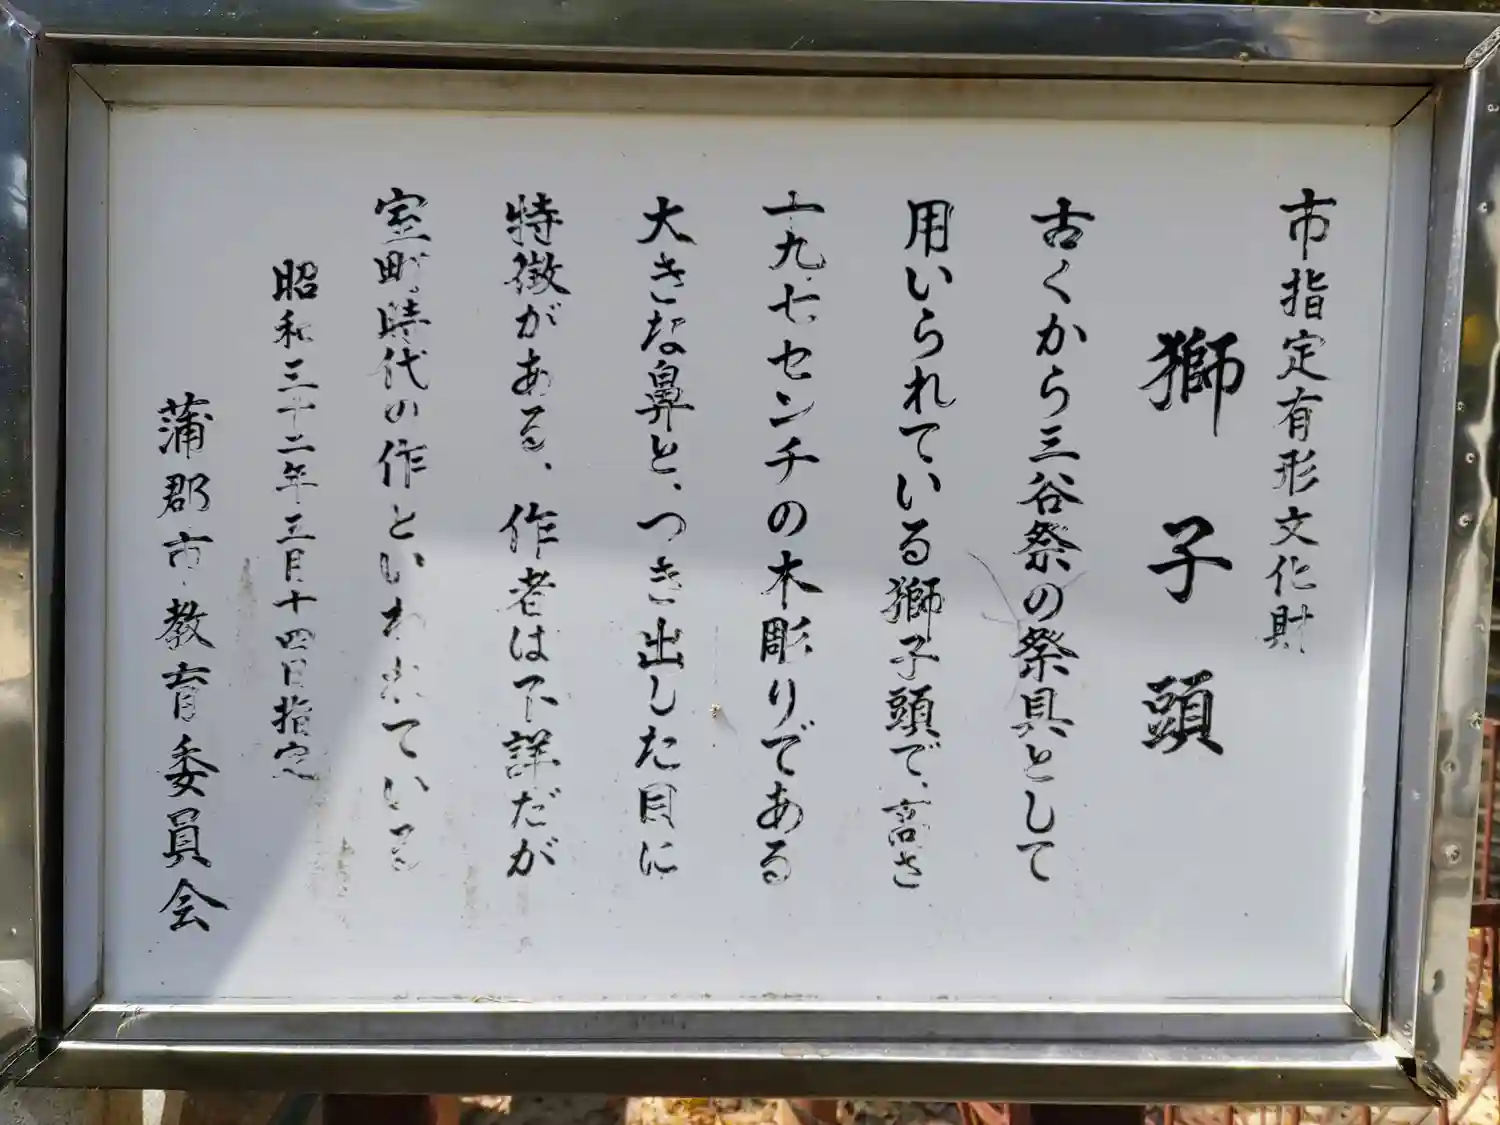 市指定有形文化財
獅子頭
古くから三谷祭の祭具として
用いられている獅子頭で、高さ
十九.七センチの木彫りである
大きな鼻と、つき出した目に
特徴がある、作者は不詳だが
室町時代の作といわれている
昭和三十二年三月十四日指定
蒲郡市教育委員会